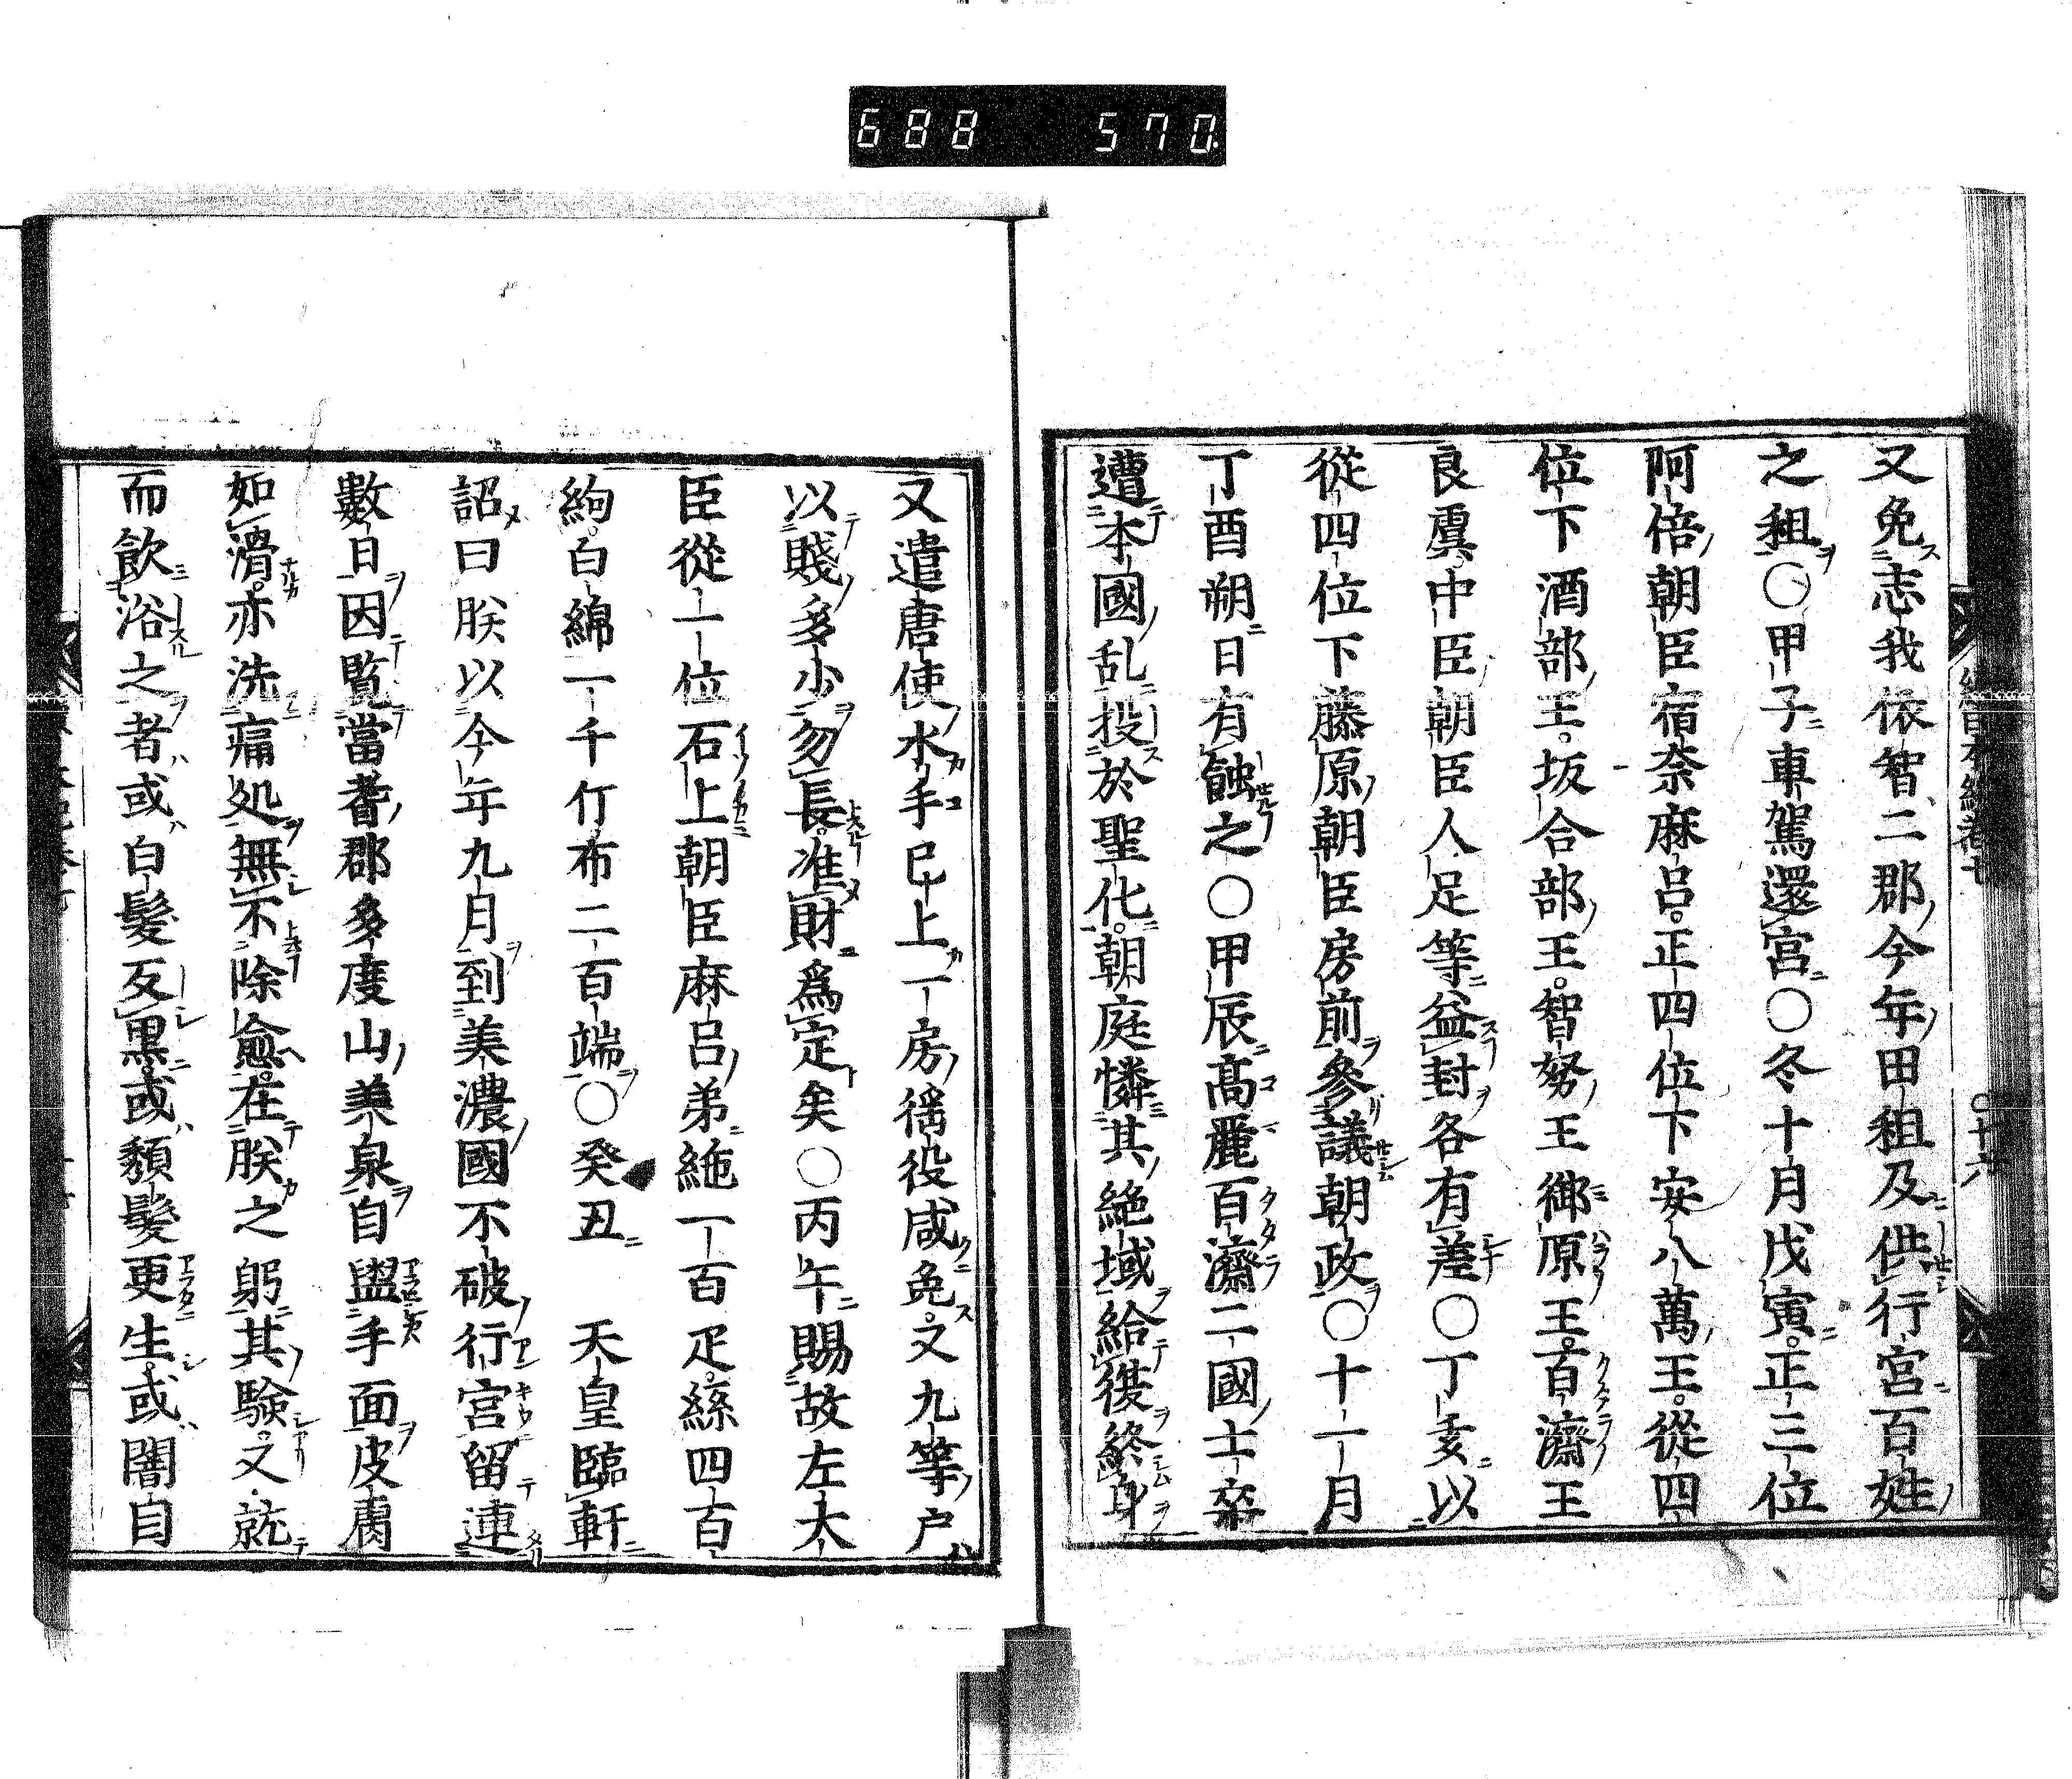 688 570
又免志我依智二郡今年田租及供行宮百姓
之租○甲子車駕還宮○冬十月戊寅正三位
阿倍朝臣宿奈麻呂正四位下安八萬王從四
位下酒部王坂合部王智努王御原王百濟王
良虞中臣朝臣人足等益封各有差○丁亥以
從四位下藤原朝臣房前參議朝政○十一月
丁酉朔日有蝕之○甲辰高麗百濟二國士卒
遭本國乱投於聖化朝庭憐其絶域給復終身
又遣唐使水手已上一房徭役咸免又九等戸
以賤多少勿長准財爲定矣○丙午賜故左大
臣從一位石上朝臣麻呂弟絁一百疋絲四百
絇白綿一千斤布二百端○癸丑 天皇臨軒
詔曰朕以今年九月到美濃國不破行宮留連
數日因覧當耆郡多度山美泉自盥手面皮膚
如滑亦洗痛処無不除愈在朕之躬其驗又就
而飲浴之者或白髮反黒或頽髮更生或闇目